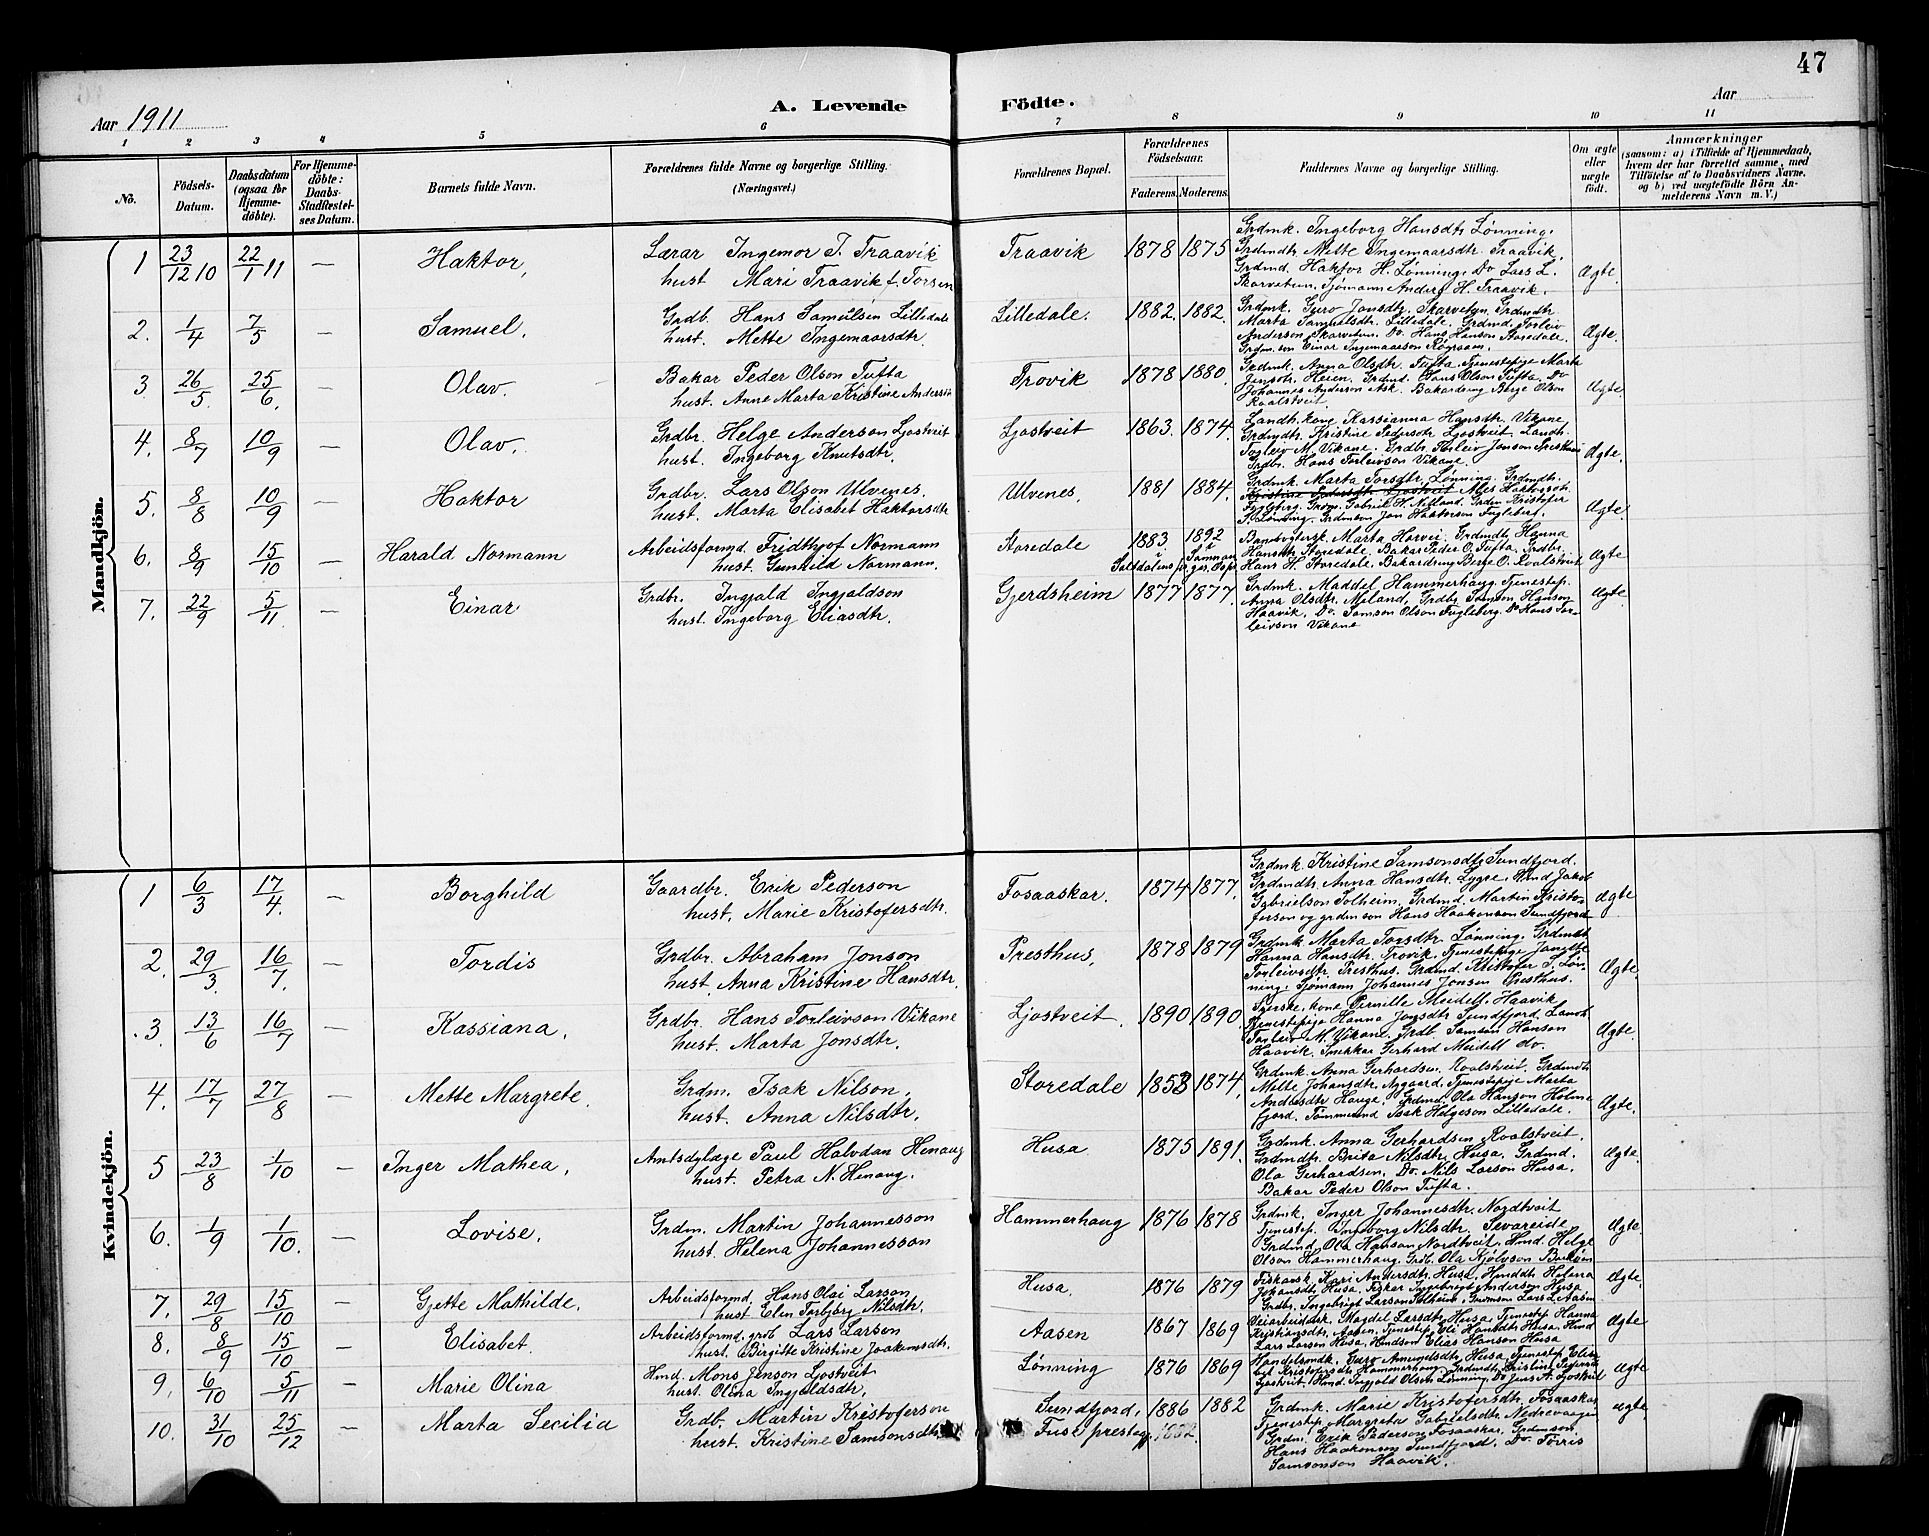 47
Aar 1911
A. Levende
Födte.
Aar
1 2 3 4 5 6 7 8 9 10 11
No.
Födsels-Datum.
Daabsdatum (ogsaa för Hjemme-döbte).
For Hjemme-döbte: Daabs-Stadfæstel-ses Datum.
Barnets fulde Navn.
Forældrenes fulde Navne og borgerlige Stilling. (Næringsvei.)
Forældrenes Bopæl.
Forældrenes Födselsaar.
Faderens. Moderens.
Faddernes Navne og borgerlige Stilling.
Om ægte eller uægte födt.
Anmærkninger
(saasom: a) i Tilfælde af Hjemmedaab, hvem der har forrettet samme, med Tilföielse af to Daabsvidners Navne, og b) ved uægtefödte Börn An-melderens Navn m. V.)
Mandkjön.
1 23/12 10 22/1 11 — Haktor,
Lærar Ingemor T. Traavik
hust Mari Traavik f. Torsen
Traavik 1878 1875
Grdmk. Ingeborg Hansdtr Lønning.
Grdmdtr Mette Ingemaarsdtr. Traavik,
Grdmd. Haktor H. Lønning, Do Lars L.
Skarvetun, Sjømann Anders H. Traavik.
Ægte.
2. 1/4 7/5 — Samuel.
Grdb. Hans Samulsen Lilledale
hust. Mette Ingemaarsdtr.
Lilledale. 1882. 1882.
Grdmk. Guro Jonsdtr. Skarvetun, Grdmdtr.
Marta Samuelsdtr. Lilledale. Grdmd. Torleiv
Anderson Skarvetun. Do. Hans Hanson Storedale.
Grdm. son Einar Ingemaarson Røyraam.
Ægte.
3 26/5. 25/6. — Olav.
Bakar Peder Olson Tufta
hust. Anne Marta Kristine Anderson
Trovik 1878 1880.
Grdmk. Anna Olsdtr. Tufta Tjenestepige Marta
Jensdtr. Heien. Grdmd. Hans Olson Tufta. Do
Johannes Anderson Ask. Bakardreng Berge Olson
Roalstveit
Ægte.
4. 8/7 10/9 — Olav.
Grdbr. Helge Anderson Ljostveit
hust. Ingeborg Knutsdtr.
Ljostveit 1863. 1874.
Landh. kone Kassianna Hansdtr. Vikane.
Grdmdtr. Kristine Pedersdtr Ljostveit Landh.
Torleiv M. Vikane. Grdbr. Torleiv Jonson Presthus
Grdbr. Hans Torleivson Vikane.
Ægte.
5. 8/8 10/9 — Haktor
Grdbr. Lars Olson Ulvenes.
hust. Marta Elisabet Haktorsdtr
Ulvenes. 1881 1884.
Grdmk. Marta Torsdtr. Lønning. Grdmdtr.
Kristine Pedersdtr Ljostveit Ales Haktorsdtr.
Fugleberg. Grdm. Gabriel H. Netland. Grdm Kristofer
S. Lønning. Grdmson Jon Haaktorson Fugleberg.
Ægte.
6. 8/9 15/10 — Harald Normann
Arbeidsformd. Fridthjof Normann
hust. Gunhild Normann.
Storedale 1883. 1892
Marta Horvei. Grdmdt. Hanna
Hansdtr Storedale. Bakar Peder O. Tufta. Grdbr.
Hans H. Storedale, Bakardreng Berge O. Roalstveit
Ægte
7. 22/9 5/11 — Einar
Grdbr. Ingjald Ingjaldson
hust. Ingeborg Eliasdtr.
Gjerdsheim 1877 1877.
Grdmk. Maddel Hammerhaug. Tjenestep.
Anna Olsdtr. Miland, Grdb. Samson Hanson
Haavik, Do. Samson Olson Fugleberg. Do Hans Tor-
leivson Vikane
Ægte.
Kvindekjön.
1 6/3 17/4. — Borghild
Gaardbr. Erik Pederson
hust. Marie Kristofersdtr.
Fosaaskar. 1874 1877.
Grdmk. Kristine Samsonsdtr Sundfjord.
Grdmdtr. Anna Hansdtr. Lygre. Hmd Jakob
Gabrielson Solheim, Grdmd. Martin Kristo-
ferson og grdm son Hans Haakonson Sundfjord
Ægte
2. 29/3. 16/7. — Tordis
Grdbr. Abraham Jonson
hust. Anna Kristine Hansdtr.
Presthus, 1878 1879
Grdmk. Marta Torsdtr. Lønning. Grdmdt
Hanna Hansdtr. Trovik, Tjenestepige Janette
Torleivsdtr. Presthus. Grdmd. Kristofer S. Løn-
ning. Sjømann Johannes Jonsen Presthus.
Ægte.
3. 13/6 16/7 — Kassiana.
Grdbr. Hans Torleivson Vikane
hust. Marta Jonsdtr.
Ljostveit. 1890 1890
kone Pernille Meidell. Haavik
Tjenestepige Hanna Jonsdtr Sundfjord. Landh
Torleiv M. Vikane. Grdb. Samson Hanson
Haavik. Snekkar Gerhard Meidell do.
Ægte.
4. 17/7 27/8 — Mette Margrete.
Grdm. Isak Nilson,
hust. Anna Nilsdtr.
Storedale 1853 1874.
Grdmk. Anna Gerhardsen. Roalstveit. Grdmdtr
Mette Johansdtr. Aagaard. Tjenestepige Marta
Andersdtr Hauge. Grdmd. Ola Hanson Holme
fjord. Tømmermd Isak Helgeson Lilledale.
Ægte.
5 23/8 1/10 — Inger Mathea.
Amtsdyrlæge Paul Halvdan Henaug
hust. Petra N. Henaug.
Husa. 1875 1891.
Grdmk. Anna Gerhardsen Roalstveit.
Grdmdtr. Brita Nilsdtr. Husa, Grdmd.
Ola Gerhardsen, Do. Nils Larson Husa.
Bakar Peder Olson Tufta.
Ægte.
6. 1/9 1/10. — Lovise.
Grdm. Martin Johannesson
hust. Helena Johannesson
Hammerhaug 1876 1878
Grdmk. Inger Johannesdtr. Nordtveit
Tjenestep. Ingeborg Nilsdtr. Sevareide,
Grdmd. Ola Hanson Nordtveit. Hmd. Helge
Olson Hammerhaug. Grdb. Ola
Ægte.
7. 29/8 15/10 — Gjette Mathilde.
Arbeidsformd. Hans Olai Larson
hust Elen Torbjørg Nilsdtr.
Husa. 1876 1879
Fiskarsk. Kari Andersdtr. Husa. Hmddt. Helena
Johansdtr. Husa, Fiskar Ingebrigt Anderson Husa
Grdbr. Ingebrigt Larson Solheim. Grdmson Lars L. Aasen
Ægte.
8. 8/9 15/10 — Elisabet.
Arbeidsformd. grdb Lars Larsen
hust. Birgitte Kristine Joakimsdtr.
Aasen 1867 1869
Magdel Larsdtr. Husa Tjenestep. Hanna
Kristiansdtr. Aasen, Tjenestep. Eli Hansdtr. Husa, Hmd
Lars Larson Husa, Hmdson Elias Hanson Husa
Ægte
9. 6/10 5/11 — Marie Olina
Hmd. Mons Jenson Ljostveit
hust. Olina Ingjaldsdtr.
Lønning 1876 1869
Handelsmdk. Guro Amundsdtr. Husa, Tjenestep. Elisa-
bet Kristofersdtr. Hammerhaug, Grdmdt. Kristine Pedersdtr
Ljostveit. Hmd. Ingjald Olson Lønning. Do Jens A. Ljostveit
Ægte
10. 31/10 25/12 — Marta Secilia
Grdb. Martin Kristoferson
hust. Kristine Samsonsdtr.
Sundfjord. Fuse prestegj. 1886 1882
1882.
Grdmk. Marie Kristofersdtr. Fosaaskar
Tjenestep. Margreta Gabrielsdtr Nedrevaage
Grdm. Erik Pederson Fosaaskar, Grdmson.
Hans Haakonson Sundfjord. Do. Torris
Samsonson Haavik.
Ægte.